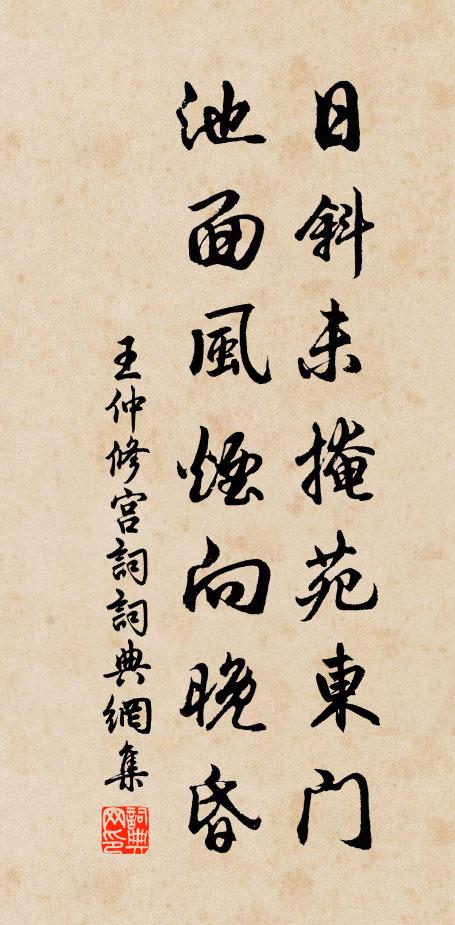 日斜未掩苑東門
池面風煙向晚昏
王仲修宮詞詞典網集
詞典网印